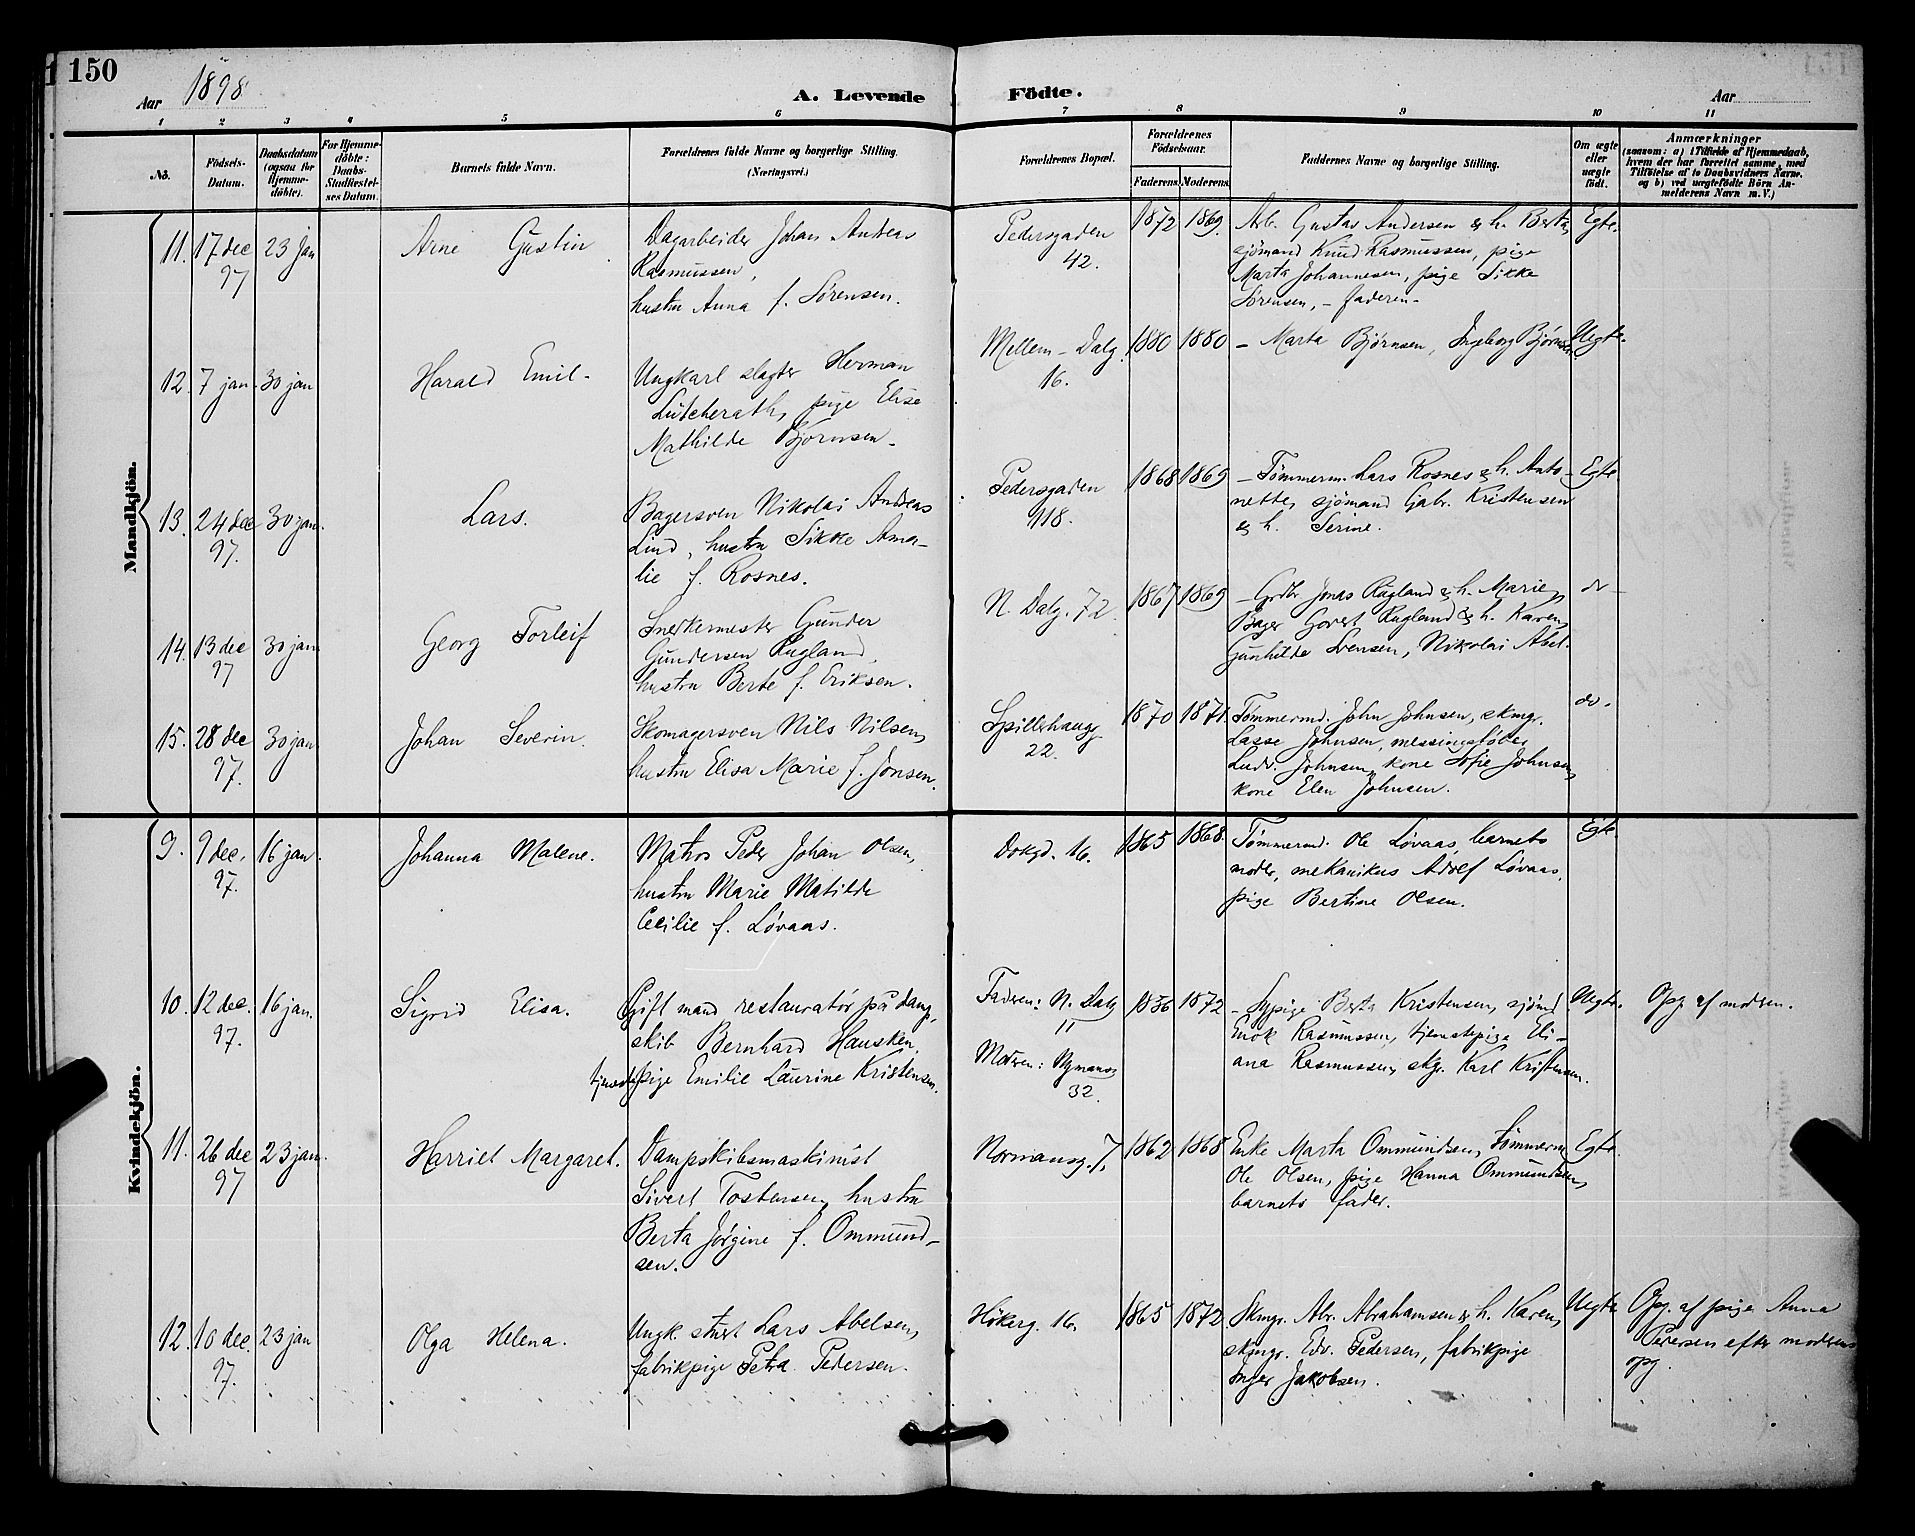 150
Aar 1898.
A. Levende Födte.
Aar
1 2 3 4 5 6 7 8 9 10 11
No.
Födsels-
Datum.
Daabsdatum
(ogsaa for
Hjemme-
döbte).
For Hjemme-
döbte:
Daabs-
Stadfæstel-
ses Datum.
Barnets fulde Navn.
Forældrenes fulde Navne og borgerlige Stilling.
(Næringsvei.)
Forældrenes Bopæl.
Forældrenes
Födselsaar.
Faderens. Moderens.
Faddernes Navne og borgerlige Stilling.
Om ægte
eller
uægte
födt.
Anmærkninger
(saasom: a) i Tilfælde af Hjemmedaab,
hvem der har forrettet samme, med
Tilföielse af to Daabsvidners Navne.
og b) ved uægtefödte Börn An-
melderens Navn m. V.)
Mandkjön.
11. 17 dec 97 23 jan
Arne Gustin
Dagarbeider Johan Andreas
Rasmussen,
hustru Anna f. Sörensen.
Pedersgaden
42.
1872 1869.
Arb. Gustav Andersen & h. Berta,
sjömand Knud Rasmussen, pige
Marta Johannesen, pige Sikke
Sörensen, - faderen -
Egte.
12. 7 jan. 30 jan
Harald Emil -
Ungkarl slagter Herman
Lütcherath, pige Elise
Mathilde Bjørnsen -
Mellem - Dalg.
16.
1880 1880
- Marta Bjørnsen, Ingeborg Bjørnsen
Uegte.
13. 24 dec 97. 30 jan.
Lars.
Bagersven Nikolai Andreas
Lind, hustru Sikke Ama-
lie f. Rosnes.
Pedersgaden
118.
1868 1869
- Tømmerm. Lars Rosnes & h. Anto-
nette, sjömand Gabr. Kristensen
& h. Serine.
Egte
14. 13 dec 97 30 jan
Georg Torleif
Snedkermester Gunder
Gundersen Rugland,
hustru Berte f. Eriksen.
N. Dalg. 72
1867 1869
- Grdbr Jonas Rugland & h. Marie,
Bager Govert Rugland & h. Karen,
Gunhilde Svensen, Nikolai Abel.
do -
15. 28 dec 97. 30 jan.
Johan Severin.
Skomagersven Nils Nilsen,
hustru Elisa Marie f. Jonsen.
Spillerhaugg
22.
1870 1871.
Tømmermd. John Johnsen, skmgr.
Lasse Johnsen, messingstöber
Ludv. Johnsen, kone Sofie Johnsen,
kone Elen Johnsen.
do.
Kvindekjön.
9. 9 dec. 97. 16 jan.
Johanna Malene.
Matros Peder Johan Olsen,
hustru Marie Matilde
Cecilie f. Løvaas.
Dokgd. 16.
1865 1868.
Tømmermd. Ole Løvaas, barnets
moder, mekanikus Adolf Løvaas,
pige Bertine Olsen.
Egte
10. 12 dec. 97. 16 jan.
Sigrid Elisa.
Gift mand restauratør på damp-
skib Bernhard Hausken,
tjenestepige Emilie Laurine Kristensen.
Faderen: N. Dalg
11
Moderen: Nymansv
32.
1836 1872
- Sypige Berta Kristensen, sjömd
Enok Rasmussen, tjenestepige Eli-
ana Rasmussen, skp. Karl Kristensen.
Uegte.
Opg. af modren.
11. 26 dec 97 23 jan.
Harriet Margaret.
Dampskibsmaskinist
Sivert Tostensen, hustru
Berta Jørgine f. Ommund-
sen.
Normansg. 7,
1862 1868
Enke Marta Ommundsen, Tømmerm
Ole Olsen, pige Hanna Ommundsen,
barnets fader.
Egte.
12. 10 dec. 97. 23 jan
Olga Helena.
Ungk. stuert Lars Abelsen,
fabrikpige Petra Pedersen.
Hökerg. 16.
1865 1872
Skmgr. Abr. Abrahamsen & h. Karen,
skmgr. Edv. Pedersen, fabrikpige
Inger Jakobsen.
Uegte
Opg. af pige Anna
Pedersen efter modrens
opg.